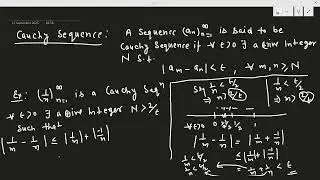 Cauchy Sequence:
A Sequence (an)∞n=1 is said to be
Cauchy Sequence if ∀ t>0 ∃ a +ive Integer
N S.t.
|am − an| < t, ∀ m, n ≥ N
Ex: (1/n)∞n=1 is a Cauchy Seqn
∀ t>0 ∃ a +ive Integer N > 2/t
Such that
|1/m − 1/n| ≤ |1/m| + |−1/n|
∀ t>0
|1/m − 1/n| = |1/m + −1/n|
≤ |1/m| + |−1/n|